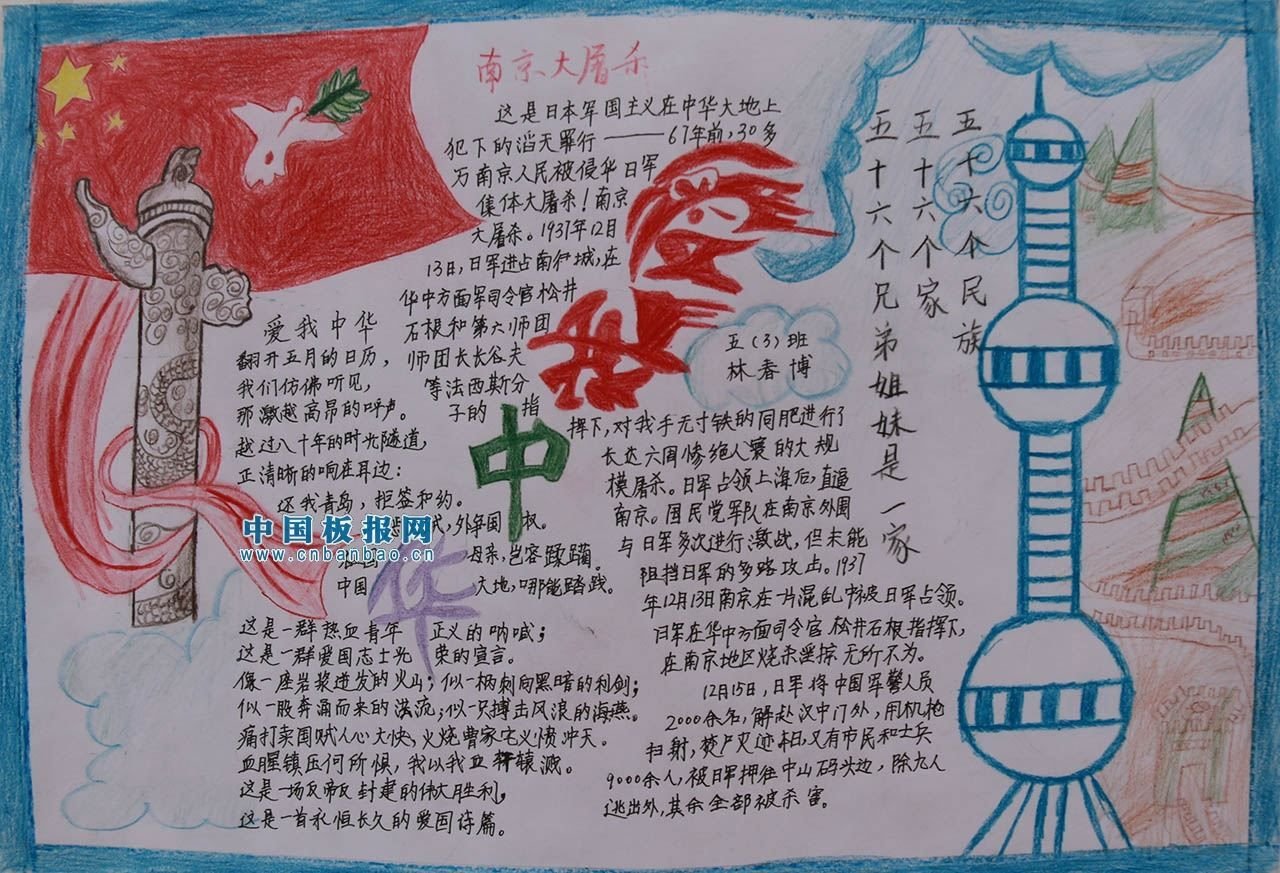 南京大屠杀
这是日本军国主义在中华大地上
犯下的滔天罪行——67年前,30多
万南京人民被侵华日军
集体大屠杀!南京
大屠杀。1937年12月
13日,日军进占南京城,在
华中方面军司令官松井
石根和第六师团
师团长长谷夫
等法西斯分
子的指
挥下,对我手无寸铁的同胞进行了
长达六周惨绝人寰的大规
模屠杀。日军占领上海后,直逼
南京。国民党军队在南京外围
与日军多次进行激战,但未能
阻挡日军的多路攻击。1937
年12月13日南京在一片混乱中被日军占领。
日军在华中方面司令官松井石根指挥下,
在南京地区烧杀淫掠无所不为。
12月15日,日军将中国军警人员
2000余名,解赴汉中门外,用机枪
扫射,焚尸灭迹。本日,又有市民和士兵
9000余人,被日军押往中山码头边,除九人
逃出外,其余全部被杀害。
爱我中华
翻开五月的日历,
我们仿佛听见,
那激越高昂的呼声。
越过八十年的时光隧道,
正清晰的响在耳边:
还我青岛,拒签和约。
外争国权。
母亲,岂容蹂躏。
中国大地,哪能踏践。
这是一群热血青年正义的呐喊;
这是一群爱国志士光荣的宣言。
像一座岩浆迸发的火山;似一柄刺向黑暗的利剑;
似一股奔涌而来的洪流;似一只搏击风浪的海燕。
痛打卖国贼人心大快,火烧曹家宅义愤冲天。
血腥镇压何所惧,我以我血荐轩辕。
这是一场反帝反封建的伟大胜利,
这是一首永恒长久的爱国诗篇。
中华
五(3)班
林春博
五十六个民族
五十六个家
五十六个兄弟姐妹是一家
中国板报网
www.cnbanbao.cn